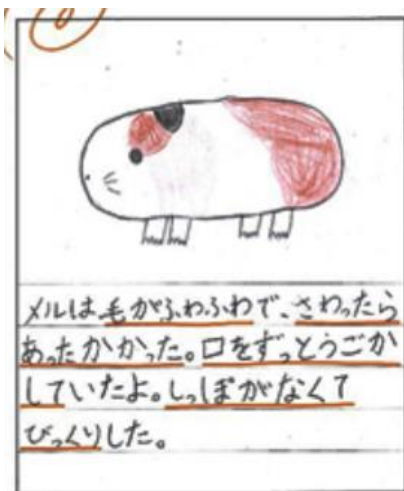 メルは毛がふわふわで、さわったら
あったかかった。口をずっとうごか
していたよ。しっぽがなくて
びっくりした。